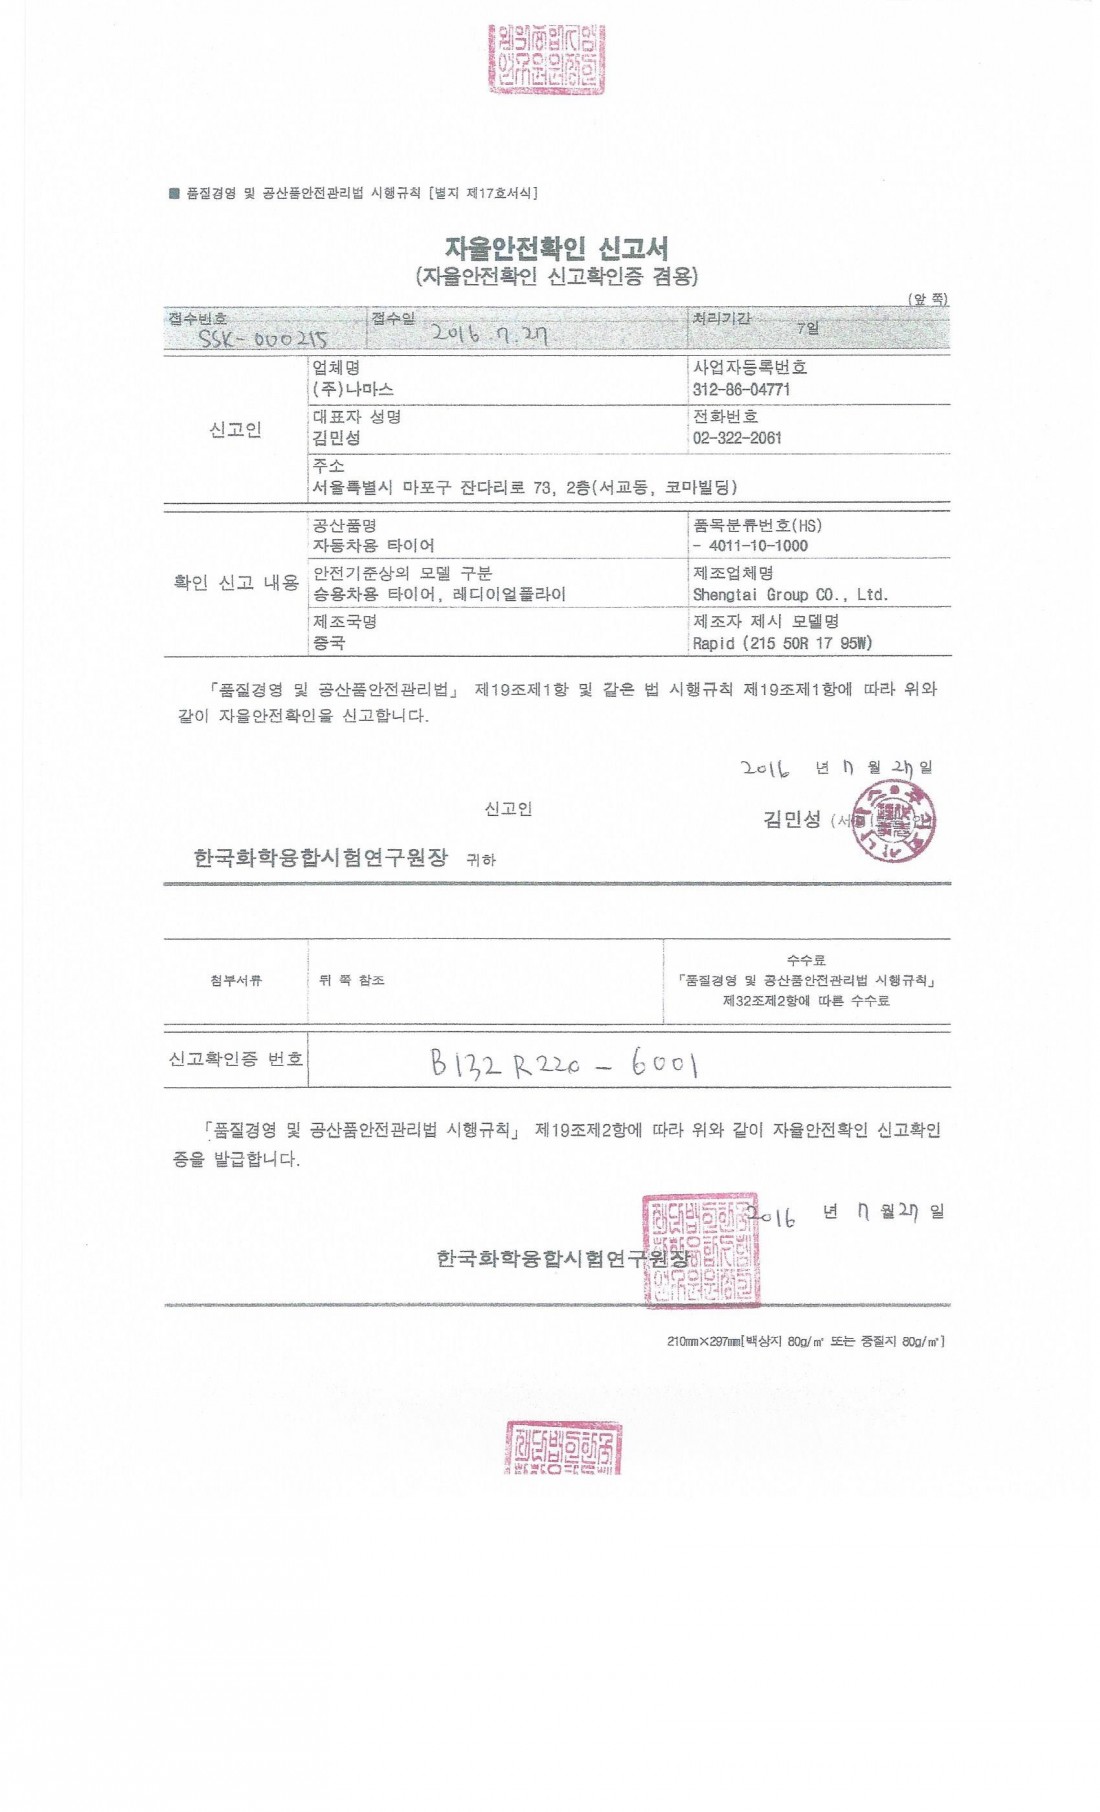 ■ 품질경영 및 공산품안전관리법 시행규칙 [별지 제17호서식]
자율안전확인 신고서
(자율안전확인 신고확인증 겸용)
(앞 쪽)
접수번호 접수일 처리기간
SSK-000215 2016.7.27 7일
업체명 사업자등록번호
(주)나마스 312-86-04771
신고인
대표자 성명 전화번호
김민성 02-322-2061
주소
서울특별시 마포구 잔다리로 73, 2층(서교동, 코마빌딩)
공산품명 품목분류번호(HS)
자동차용 타이어 - 4011-10-1000
확인 신고 내용
안전기준상의 모델 구분 제조업체명
승용차용 타이어, 레디이얼플라이 Shengtai Group CO., Ltd.
제조국명 제조자 제시 모델명
중국 Rapid (215 50R 17 95W)
「품질경영 및 공산품안전관리법」 제19조제1항 및 같은 법 시행규칙 제19조제1항에 따라 위와
같이 자율안전확인을 신고합니다.
2016 년 7 월 27 일
신고인 김민성
한국화학융합시험연구원장 귀하
첨부서류 뒤 쪽 참조
수수료
「품질경영 및 공산품안전관리법 시행규칙」
제32조제2항에 따른 수수료
신고확인증 번호 B132R220-6001
「품질경영 및 공산품안전관리법 시행규칙」 제19조제2항에 따라 위와 같이 자율안전확인 신고확인
증을 발급합니다.
2016 년 7 월 27 일
한국화학융합시험연구원장
210mm×297mm[백상지 80g/㎡ 또는 중질지 80g/㎡]